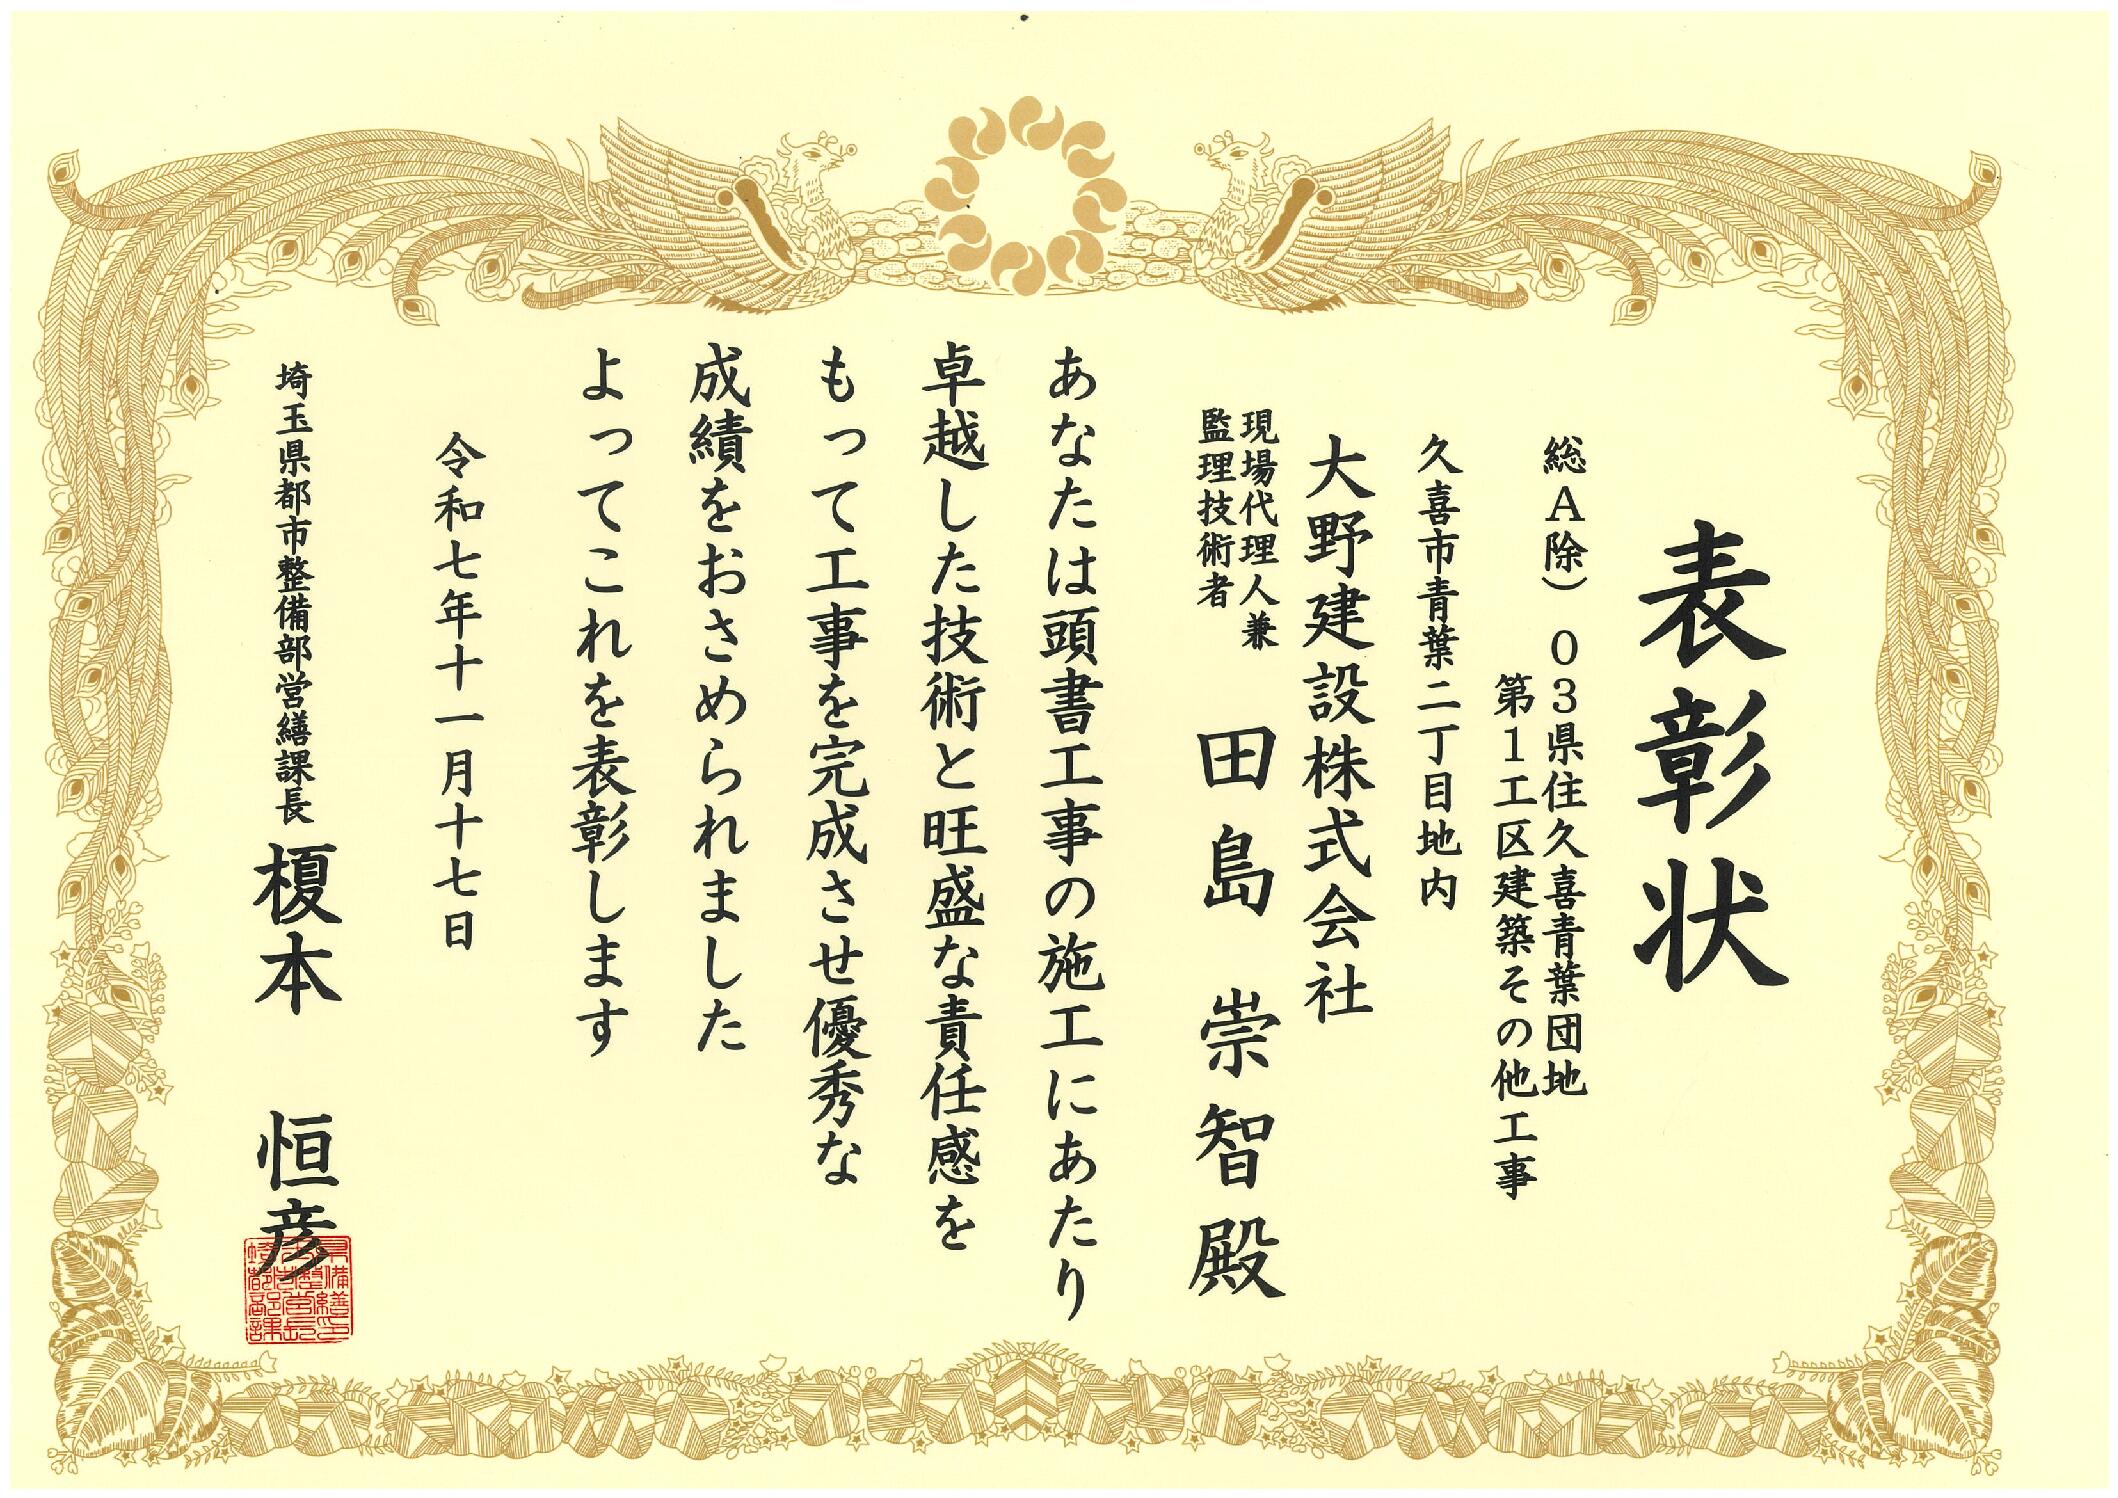 表彰状
総A除）03県住久喜青葉団地
第1工区建築その他工事
久喜市青葉二丁目地内
大野建設株式会社
現場代理人兼
監理技術者
田島崇智殿
あなたは頭書工事の施工にあたり
卓越した技術と旺盛な責任感を
もって工事を完成させ優秀な
成績をおさめられました
よってこれを表彰します
令和七年十一月十七日
埼玉県都市整備部営繕課長 榎本 恒彦